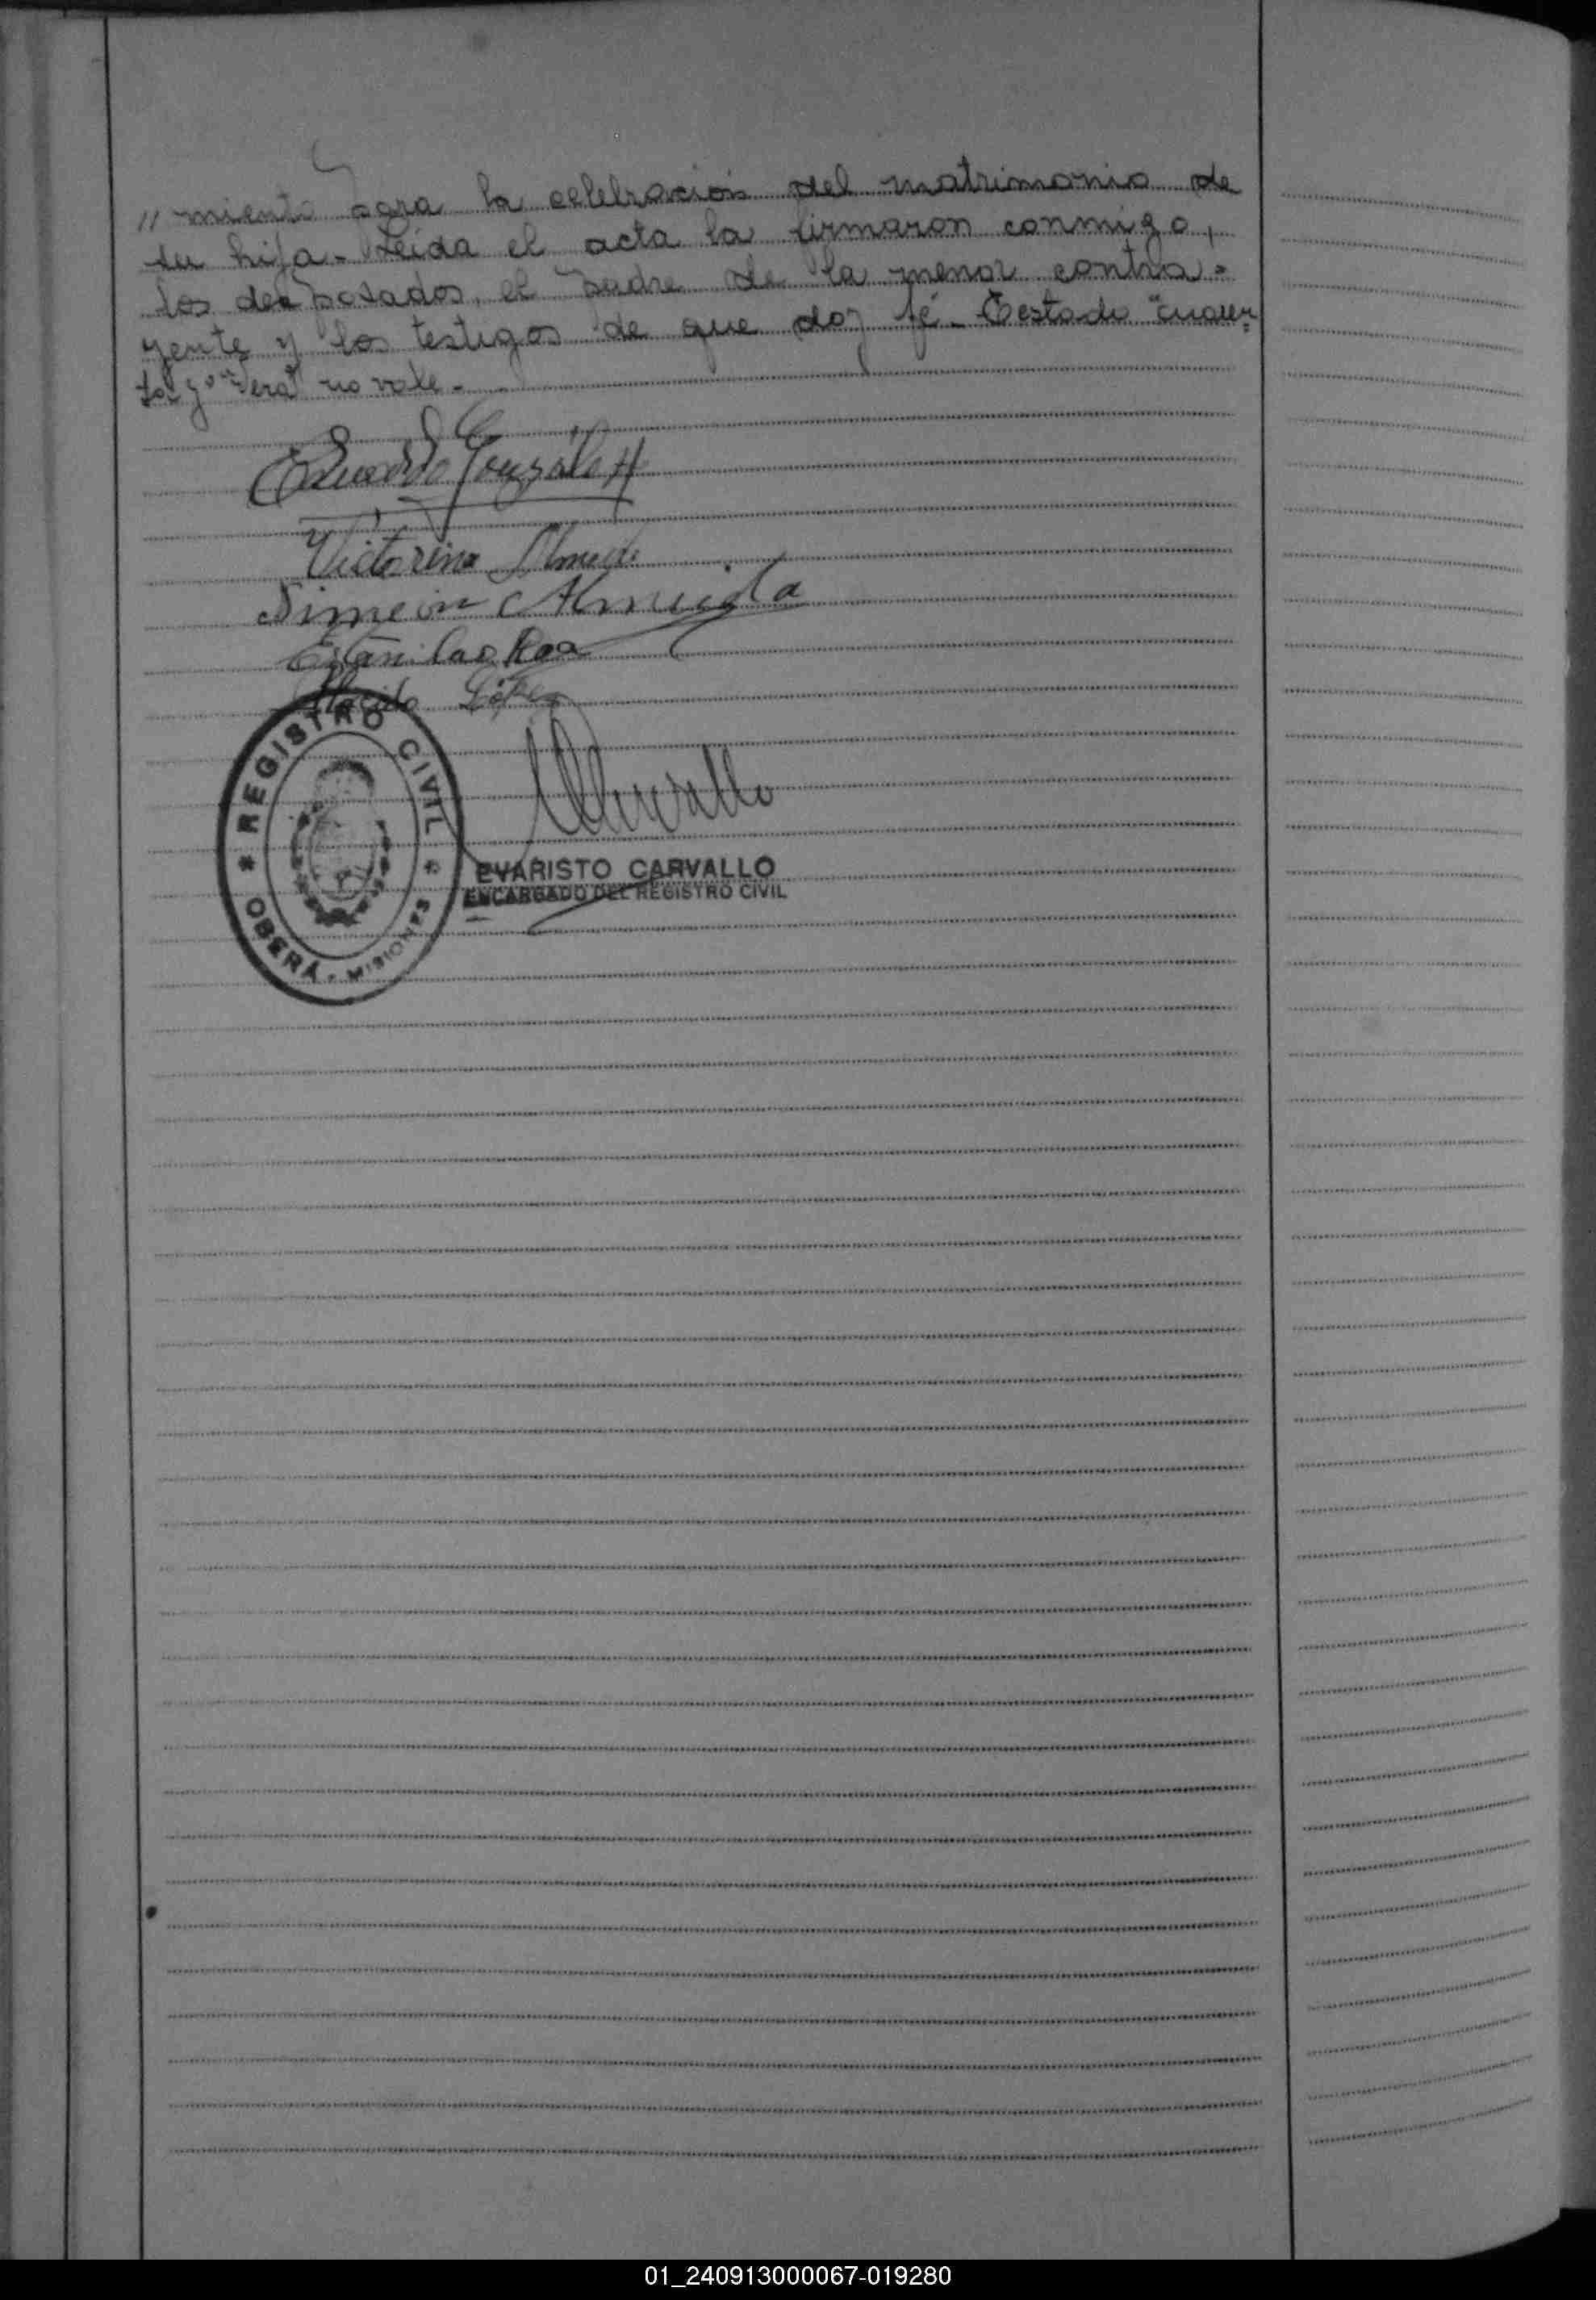 // miento para la celebración del matrimonio de
su hija.- Leída el acta la firmaron conmigo,
los desposados, el padre de la menor contra=
yente y los testigos de que doy fé.- Testado "cuaren=
ta" y "era" no vale.-
Eduardo Gonzalez
Victorina Almeida
Simeón Almeida
Estanilao Roa
Placido López
REGISTRO CIVIL
* OBERÁ - MISIONES *
EVARISTO CARVALLO
ENCARGADO DEL REGISTRO CIVIL
01_240913000067-019280